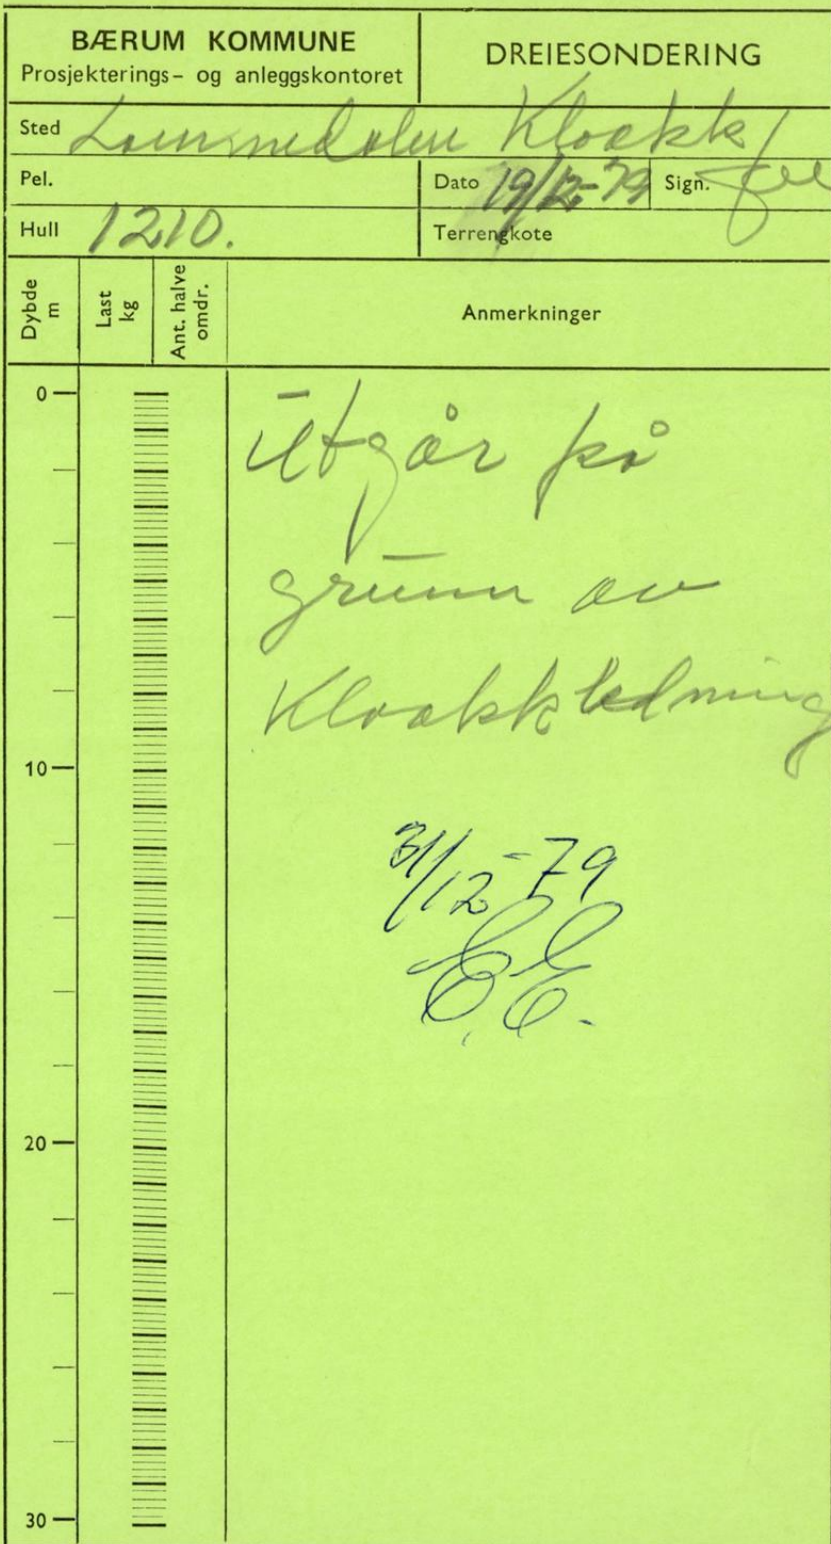 BÆRUM KOMMUNE
Prosjekterings- og anleggskontoret
DREIESONDERING
Sted Lommedalen Kloakk
Pel.
Dato 19/12-79 Sign.
Hull 1210.
Terrengkote
Dybde m
Last kg
Ant. halve omdr.
Anmerkninger
0
Utgår på
grunn av
Kloakkledning
10
31/12-79
E.E.
20
30